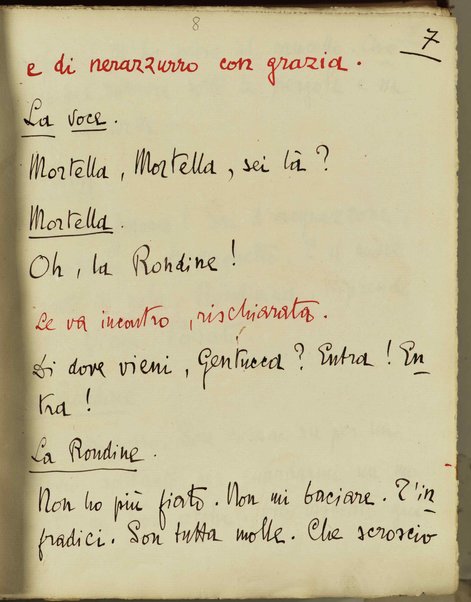 8
7
e di nerazzurro con grazia.
La voce.
Mortella, Mortella, sei là?
Mortella.
Oh, la Rondine!
Le va incontro, rischiarata.
Di dove vieni, Gentucca? Entra! En-
tra!
La Rondine.
Non ho più fiato. Non mi baciare. T'in-
fradici. Son tutta molle. Che scroscio